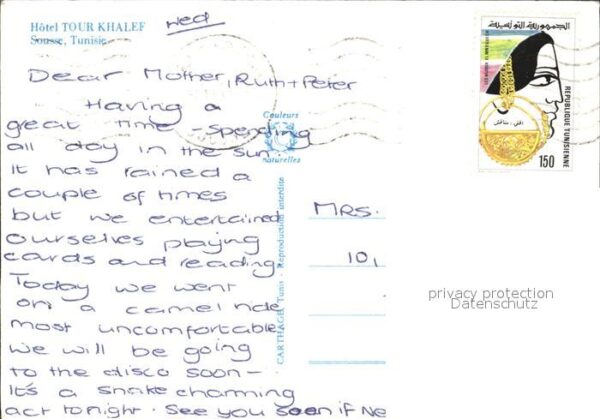 Hôtel TOUR KHALEF
Sousse, Tunisie
Wed
Dear Mother, Ruth + Peter
Having a
great time - spending
all day in the sun.
It has rained a
couple of times
but we entertained
ourselves playing
cards and reading.
Today we went
on a camel ride
most uncomfortable
we will be going
to the disco soon -
it's a snake charming
act tonight. See you soon if Ne
Couleurs
naturelles
CARTHAGE Tunis - Reproduction interdite
MRS.
10,
الجمهورية التونسية
REPUBLIQUE TUNISIENNE
150
privacy protection
Datenschutz